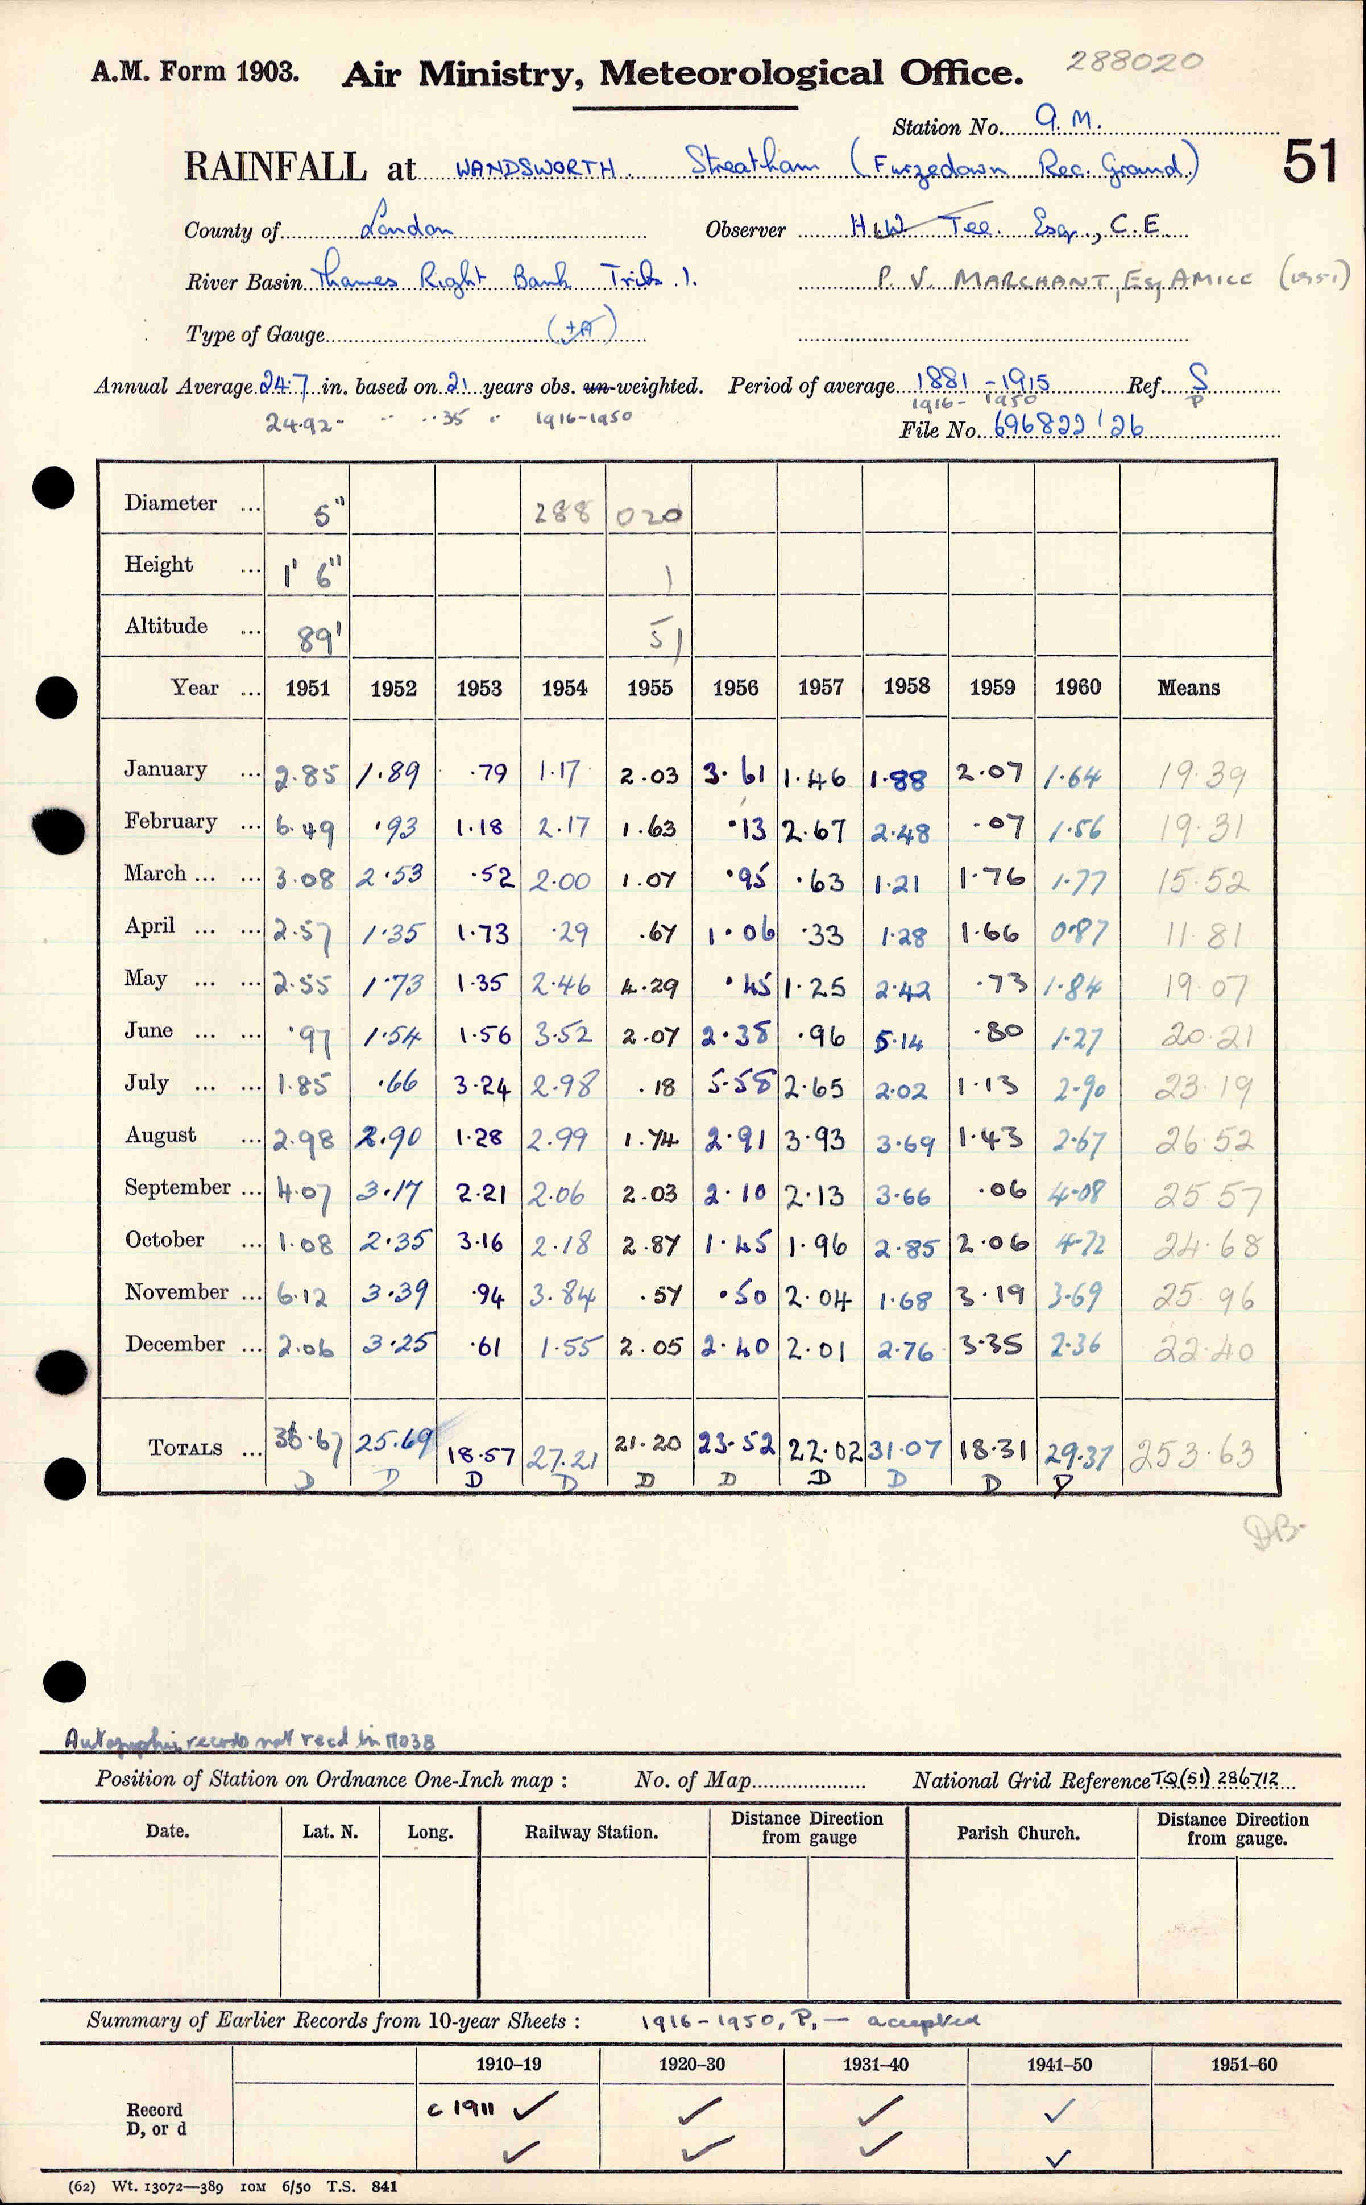 A.M. Form 1903. Air Ministry, Meteorological Office. 288020
Station No. 9.M.
RAINFALL at WANDSWORTH. Streatham (Furzedown Rec. Ground.) 51
County of London Observer H.W. Tee. Esq., C.E.
River Basin Thames Right Bank Tribs. 1. P. V. MARCHANT, Esq AMICE (1951)
Type of Gauge
Annual Average 24.7 in. based on 21 years obs. un-weighted. Period of average 1881 - 1915 Ref. S
24.92 - " " 35 " 1916-1950 1916 - 1950 P
File No. 696822/26
Diameter ... 5" 288 020
Height ... 1' 6" 1
Altitude ... 89' 51
Year ... 1951 1952 1953 1954 1955 1956 1957 1958 1959 1960 Means
January ... 2.85 1.89 .79 1.17 2.03 3.61 1.46 1.88 2.07 1.64 19.39
February ... 6.49 .93 1.18 2.17 1.63 .13 2.67 2.48 .07 1.56 19.31
March ... ... 3.08 2.53 .52 2.00 1.07 .95 .63 1.21 1.76 1.77 15.52
April ... ... 2.57 1.35 1.73 .29 .67 1.06 .33 1.28 1.66 0.87 11.81
May ... ... 2.55 1.73 1.35 2.46 4.29 .45 1.25 2.42 .73 1.84 19.07
June ... ... .97 1.54 1.56 3.52 2.07 2.38 .96 5.14 .80 1.27 20.21
July ... ... 1.85 .66 3.24 2.98 .18 5.58 2.65 2.02 1.13 2.90 23.19
August ... 2.98 2.90 1.28 2.99 1.74 2.91 3.93 3.69 1.43 2.67 26.52
September ... 4.07 3.17 2.21 2.06 2.03 2.10 2.13 3.66 .06 4.08 25.57
October ... 1.08 2.35 3.16 2.18 2.87 1.45 1.96 2.85 2.06 4.72 24.68
November ... 6.12 3.39 .94 3.84 .57 .50 2.04 1.68 3.19 3.69 25.96
December ... 2.06 3.25 .61 1.55 2.05 2.40 2.01 2.76 3.35 2.36 22.40
TOTALS ... 36.67 25.69 18.57 27.21 21.20 23.52 22.02 31.07 18.31 29.37 253.63
D D D D D D D D D D
DB.
Autographic records not recd in MO3B
Position of Station on Ordnance One-Inch map : No. of Map National Grid Reference TQ(51) 286712
Date. Lat. N. Long. Railway Station. Distance Direction from gauge Parish Church. Distance Direction from gauge.
Summary of Earlier Records from 10-year Sheets : 1916-1950, P, — accepted
1910–19 1920–30 1931–40 1941–50 1951–60
Record c 1911 ✓ ✓ ✓ ✓
D, or d ✓ ✓ ✓ ✓
(62) Wt. 13072—389 10M 6/50 T.S. 841